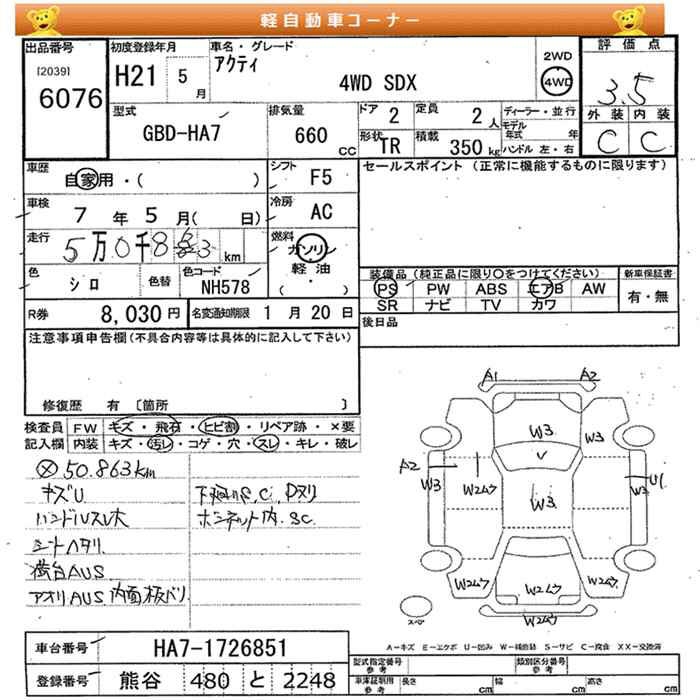 軽自動車コーナー
出品番号
[2039]
6076
初度登録年月
H21 5 月
車名・グレード
アクティ
4WD SDX
2WD
4WD
評価点
3.5
外装 内装
C C
型式
GBD-HA7
排気量
660 CC
ドア 2
定員 2 人
形状 TR
積載 350 kg
ディーラー・並行
モデル年式 年
ハンドル 左・右
車歴
自家用・( )
シフト F5
セールスポイント (正常に機能するものに限ります)
車検
7 年 5 月( 日)
冷房 AC
走行
5万0千8 3 km
燃料
ガソリン
軽油
( ・ )
色
シロ
色替
色コード
NH578
装備品 (純正品に限り○をつけてください)
PS PW ABS エアB AW
SR ナビ TV カワ
新車保証書
有・無
R券 8,030 円
名変通知期限 1 月 20 日
後日品
注意事項申告欄(不具合内容等は具体的に記入して下さい)
修復歴 有 〔箇所 〕
検査員記入欄
FW キズ・飛石・ヒビ割・リペア跡・×要
内装 キズ・汚レ・コゲ・穴・スレ・キレ・破レ
50.863km
キズU
ハンドルスレ大
シートヘタリ
荷台AUS
アオリAUS 内面板バリ
下廻りS.C. Pヌリ
ボンネット内.SC.
A1 A2
W3
W3
A2
W3
W2ムラ
W3
W3
U1
W2ムラ
W2ムラ
W2ムラ
W2ムラ
スペア
A-キズ E-エクボ U-凹み W-補修跡 S-サビ C-腐食 XX-交換済
車台番号 HA7-1726851
登録番号 熊谷 480 と 2248
型式指定番号 参考
類別区分番号 参考
車庫証明用 参考
長さ cm
幅 cm
高さ cm